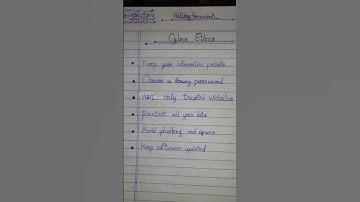 Holiday Homework
Cyber Ethics
Keep your information private
Choose a strong password
Visit only trusted websites
Protect all your data
Avoid phishing and spams
Keep software updated